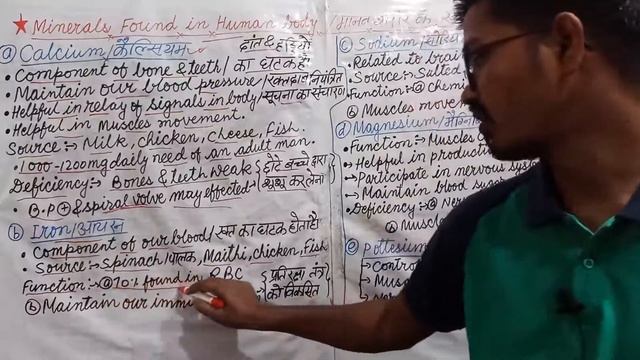 ★ Minerals Found in Human body / मानव शरीर के
ⓐ Calcium/कैल्सियम
दांत & हड्डियों
• Component of bone & teeth/ का घटक है
• Maintain our blood pressure / रक्तदाब नियंत्रित
• Helpful in relay of signals in body / सूचना का संचारण
• Helpful in Muscles movement.
Source :- Milk, Chicken, Cheese, Fish.
• 1000-1200mg daily need of an adult man.
Deficiency:- Bones & teeth weak
• B.P ⊕ & spiral valve may effected
छोटे बच्चे द्वारा
शुरू कर लेना
ⓑ Iron/आयरन
• Component of our blood/रक्त का घटक होता है
• Source :- Spinach/पालक, Maithi, chicken, Fish
Function :- ⓐ 70% found in RBC
ⓑ Maintain our immu
प्रतिरक्षा तंत्र
को विकसित
ⓒ Sodium/
• Related to brai
• Source :- Salted,
Function :- ⓐ Chemi
ⓑ Muscles movem
ⓓ Magnesium/
Function :- Muscles
• Helpful in producti
→ Participate in nervous
→ Maintain blood suga
Deficiency :- ⓐ Ner
ⓑ Muscl
ⓔ Pottesium
• Contro
• Musc